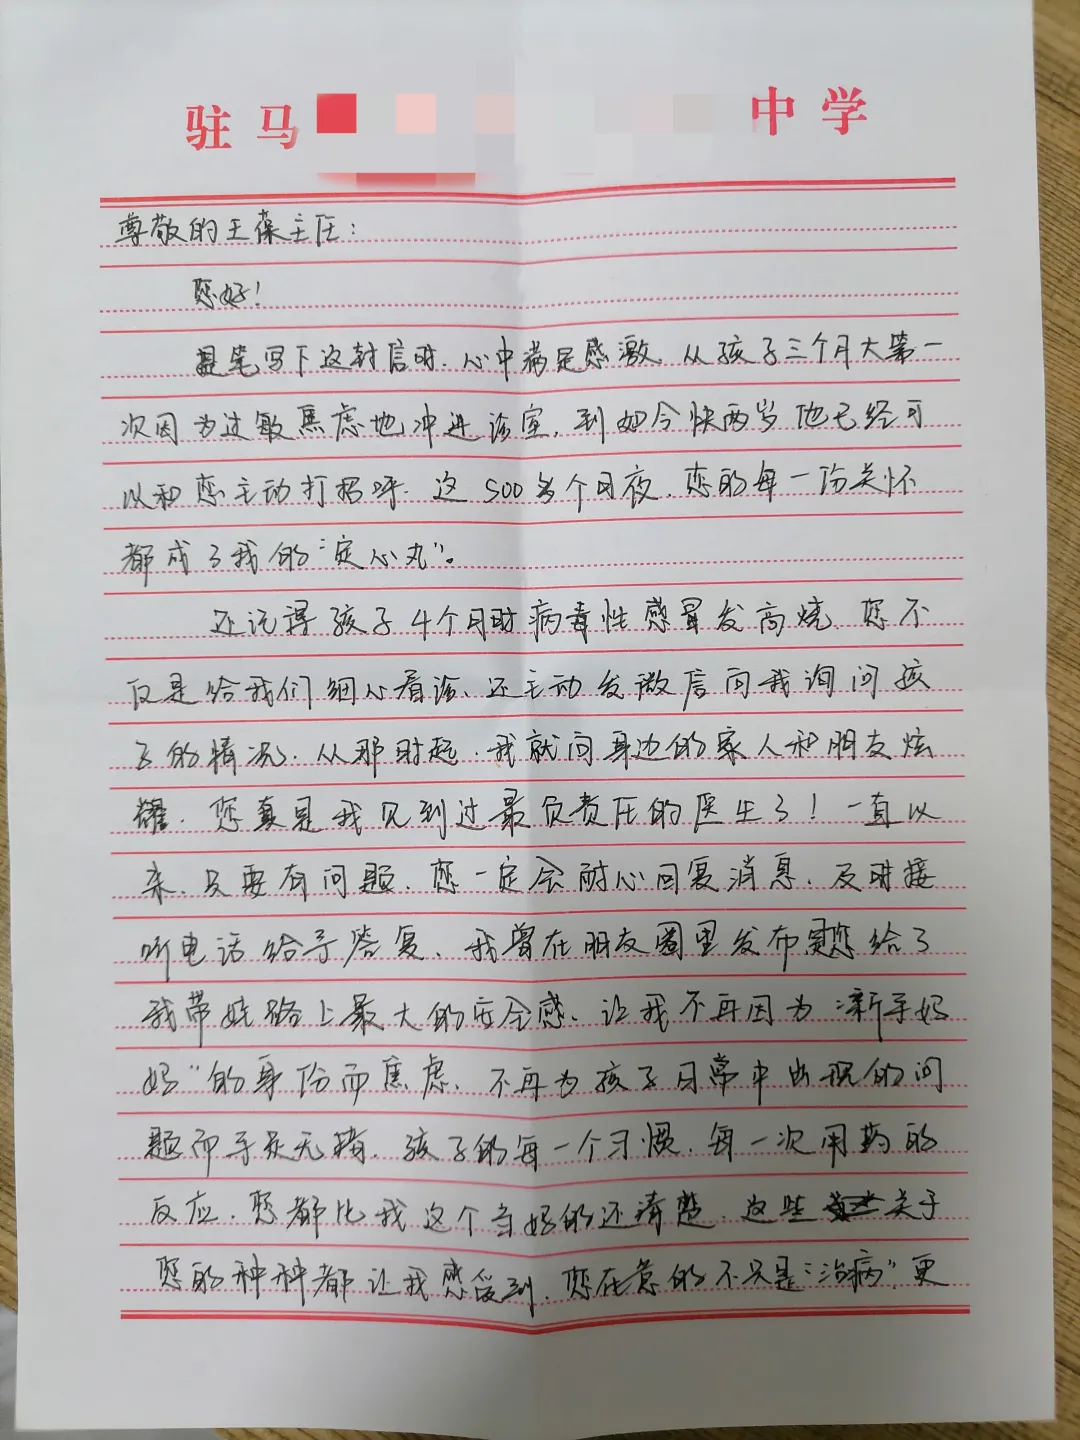 驻马 中学
尊敬的王葆主任：
您好！
提笔写下这封信时，心中满是感激。从孩子三个月大第一
次因为过敏焦虑地冲进诊室，到如今快两岁他已经可
以和您主动打招呼，这500多个日夜，您的每一份关怀
都成了我的“定心丸”。
还记得孩子4个月时病毒性感冒发高烧，您不
仅是给我们细心看诊、还主动发微信向我询问孩
子的情况，从那时起，我就向身边的家人和朋友炫
耀，您真是我见到过最负责任的医生了！一直以
来，只要有问题，您一定会耐心回复消息、及时接
听电话给予答复、我曾在朋友圈里发布是您给了
我带娃路上最大的安全感、让我不再因为“新手妈
妈”的身份而焦虑，不再为孩子日常中出现的问
题而手足无措，孩子的每一个习惯，每一次用药的
反应，您都比我这个当妈的还清楚，这些关于
您的种种都让我感受到，您在意的不只是“治病”更